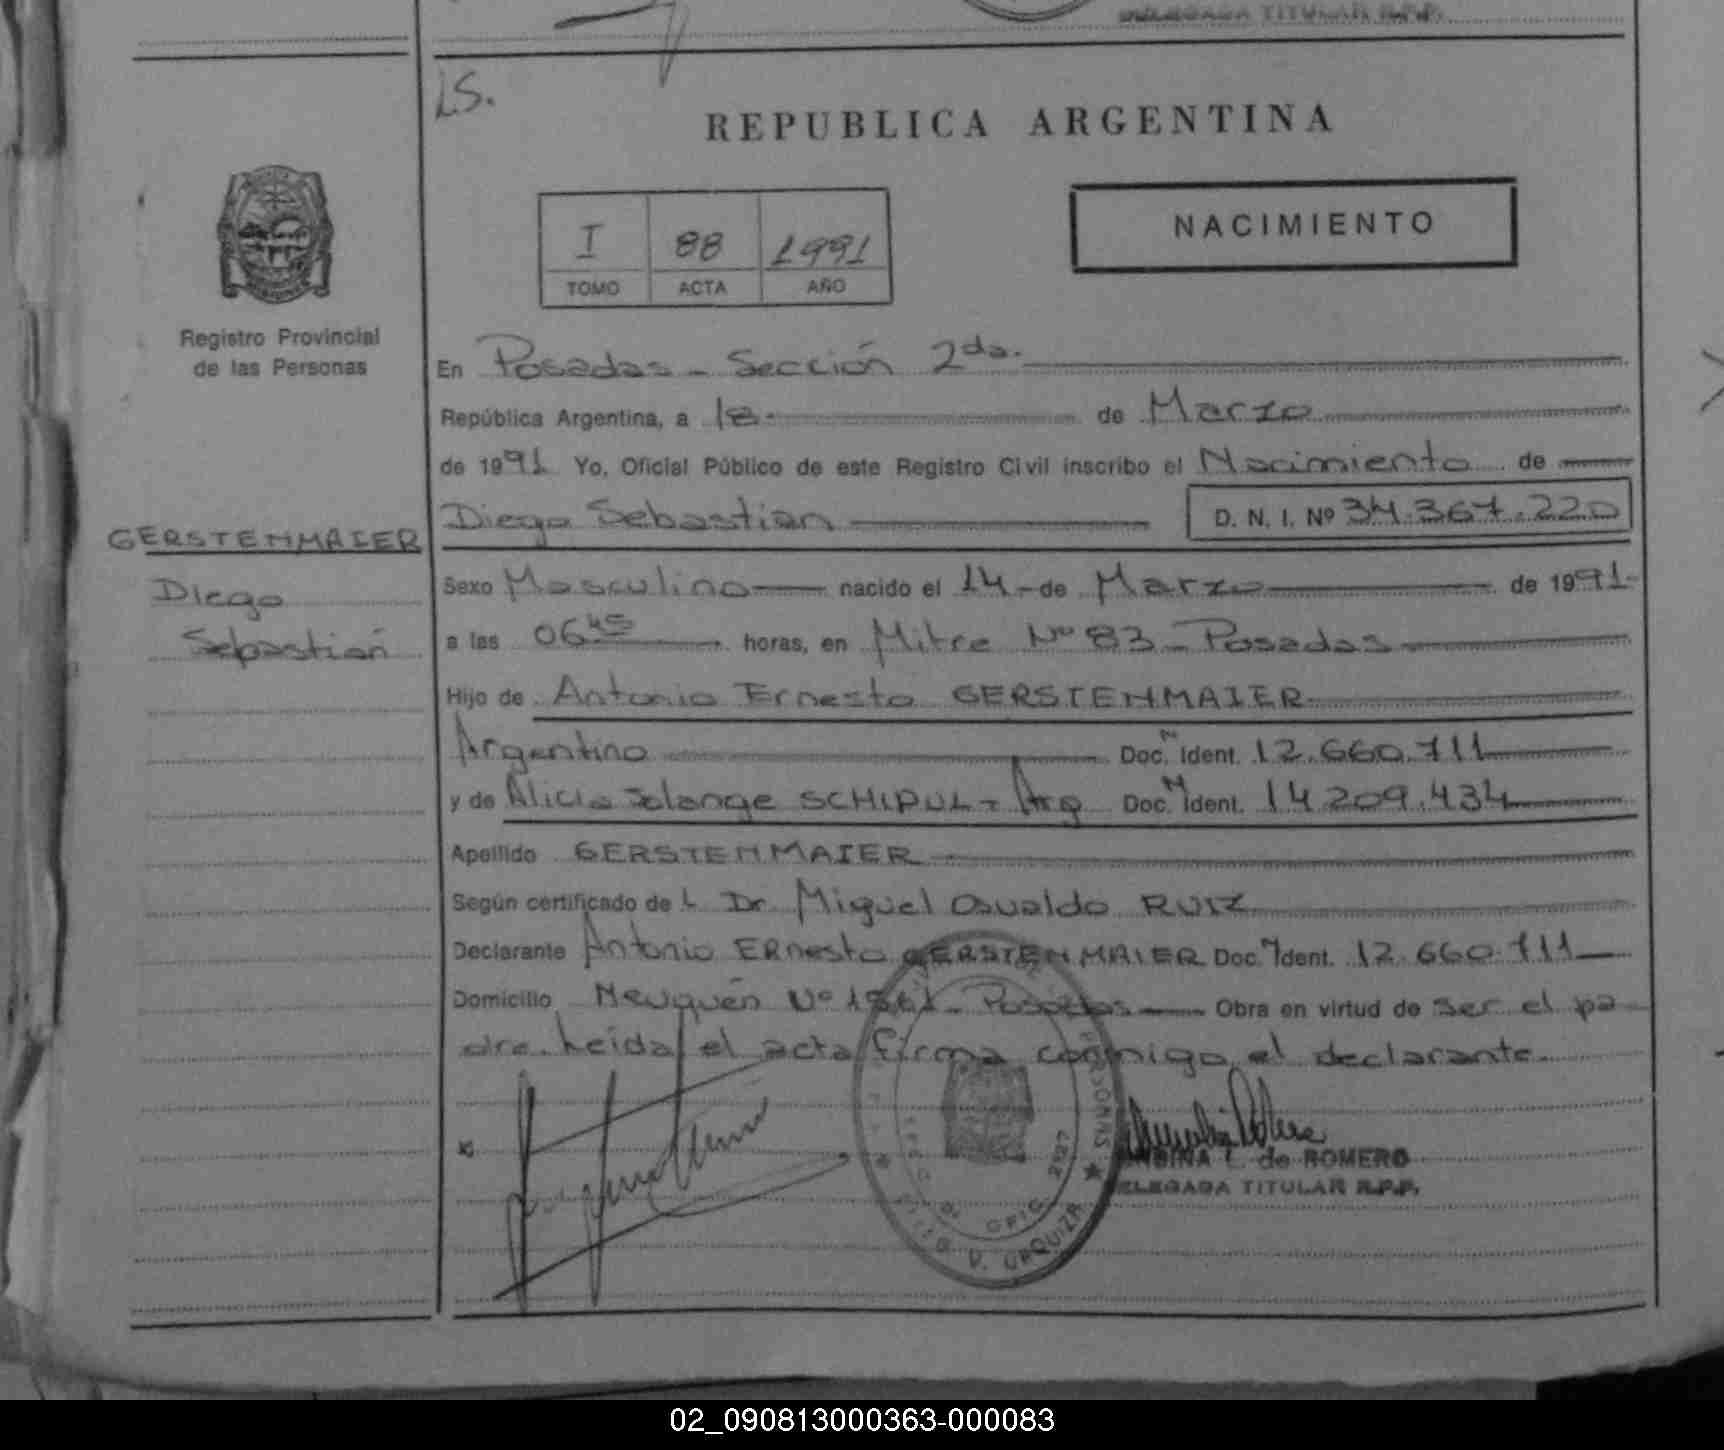 DELEGADA TITULAR R.P.P.
LS.
REPUBLICA ARGENTINA
NACIMIENTO
I 88 1991
TOMO ACTA AÑO
Registro Provincial
de las Personas
En Posadas - Sección 2da.
República Argentina, a 18 de Marzo
de 1991 Yo, Oficial Público de este Registro Civil inscribo el Nacimiento de
Diego Sebastian D. N. I. Nº 34.367.220
GERSTENMAIER
Diego
Sebastián
Sexo Masculino nacido el 14 - de Marzo de 1991-
a las 06 45 horas, en Mitre Nº 83 - Posadas
Hijo de Antonio Ernesto GERSTENMAIER
Argentino Doc. N Ident. 12.660.711
y de Alicia Solange SCHIPUL - Arg Doc. N Ident. 14.209.434
Apellido GERSTENMAIER
Según certificado de L Dr. Miguel Osvaldo RUIZ
Declarante Antonio ERnesto GERSTENMAIER Doc. N Ident. 12.660.711
Domicilio Neuquén Nº Posadas Obra en virtud de ser el pa-
dre. Leida el acta firma conmigo el declarante.
PERSONAS
OFIC. 2127
V. URQUIZA
L. de ROMERO
DELEGADA TITULAR R.P.P.
02_090813000363-000083